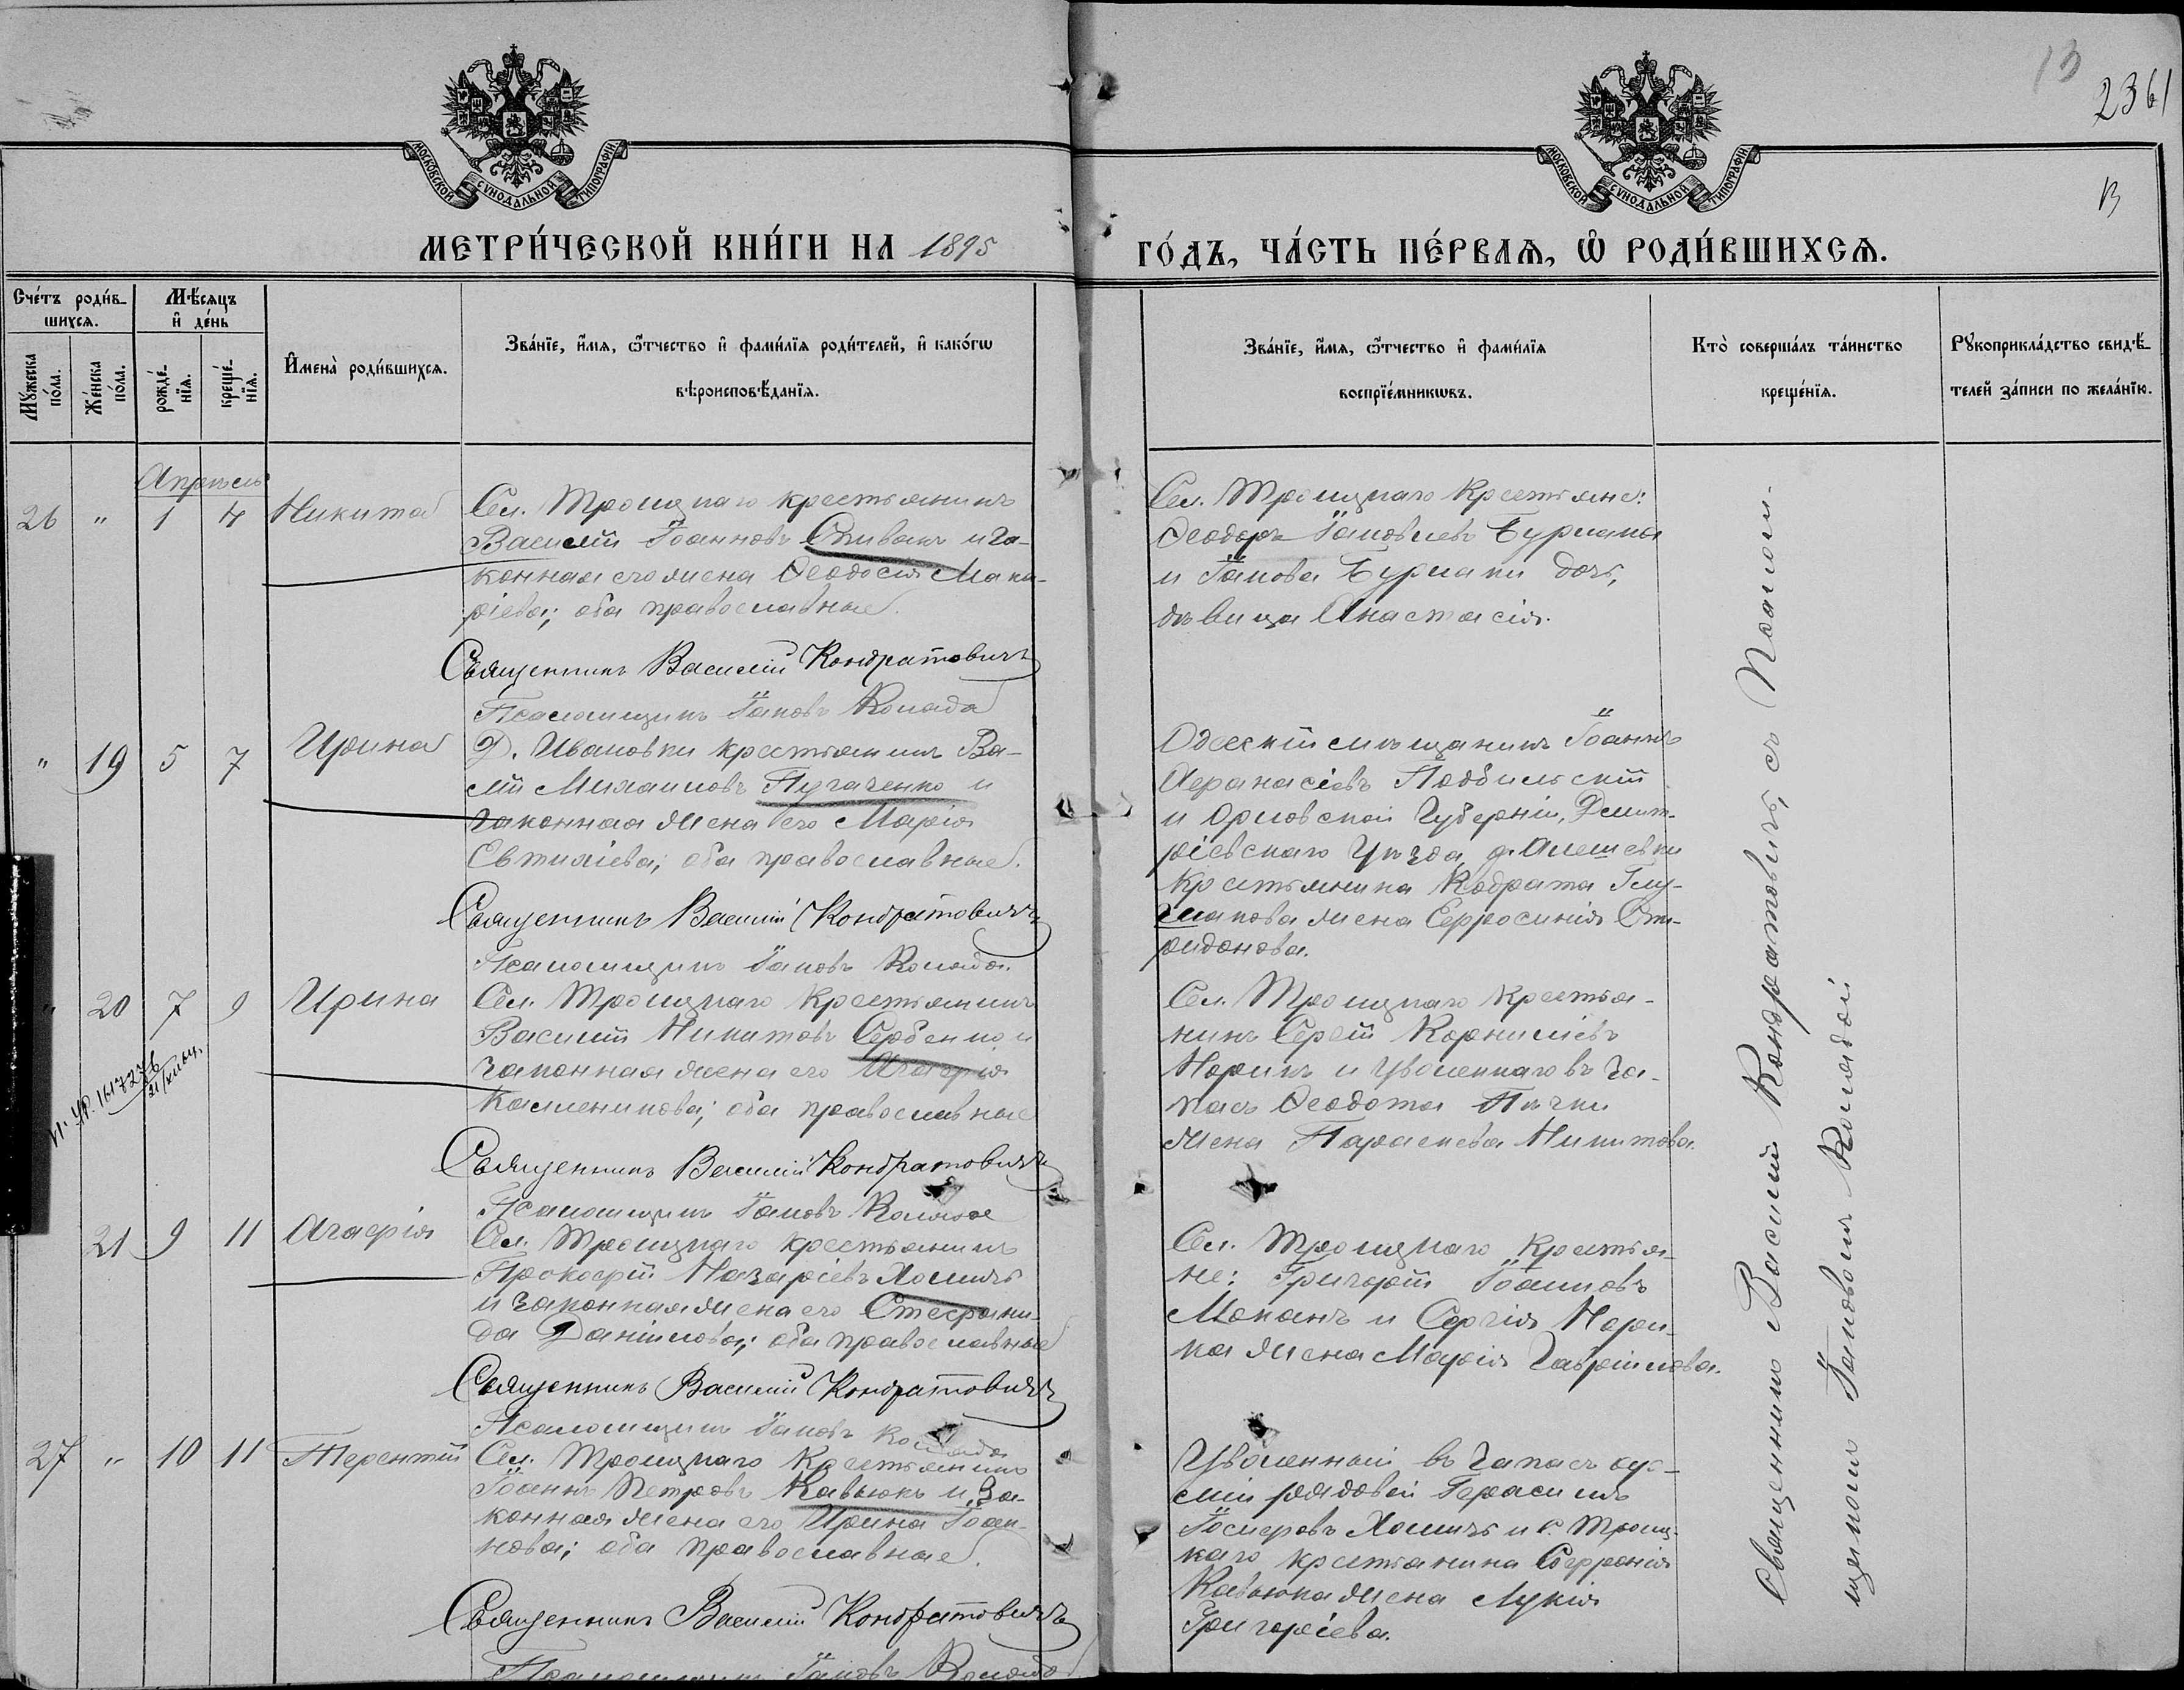 13
2361
13
МОСКОВСКОЙ СѴНОДАЛЬНОЙ ТИПОГРАФІИ
МОСКОВСКОЙ СѴНОДАЛЬНОЙ ТИПОГРАФІИ
МЕТРИ́ЧЕСКОЙ КНИ́ГИ НА 1895
ГО́ДЪ, ЧА́СТЬ ПЕ́РВАѦ, Ѽ РОДИ́ВШИХСѦ.
Сче́тъ роди́в-
шихсѧ.
Мѣ́сѧцъ
и҆ де́нь
Мꙋ́жеска
по́ла.
Же́нска
по́ла.
рожде́-
нїѧ.
креще́-
нїѧ.
И҆мена̀ роди́вшихсѧ.
Зва́нїе, и҆́мѧ, ѻ҆́тчество и҆ фами́лїѧ роди́телей, и҆ како́гѡ
вѣроисповѣ́данїѧ.
Зва́нїе, и҆́мѧ, ѻ҆́тчество и҆ фами́лїѧ
воспрїе́мникѡвъ.
Кто̀ соверша́лъ та́инство
креще́нїѧ.
Рꙋкоприкла́дство свидѣ́-
телей за́писи по жела́нїю.
Апрѣль
26 " 1 4 Никита
Сел. Троицкаго крестьянинъ
Василій Іоанновъ Спивакъ и за-
конная его жена Ѳеодосія Мака-
ріева; оба православные.
Священникъ Василій Кондратовичъ
Псаломщикъ Іаковъ Коляда
Сел. Троицкаго крестьяне:
Ѳеодоръ Іаковлевъ Бурлака
и Іакова Бурлаки дочь,
дѣвица Анастасія.
" 19 5 7 Ирина
Д. Ивановки крестьянинъ Ва-
лій Михаиловъ Пугаченко и
законная жена его Марія
Евтихіева; оба православные.
Священникъ Василій Кондратовичъ
Псаломщикъ Іаковъ Коляда.
Одесскій мѣщанинъ Іоаннъ
Аѳанасіевъ Подбильскій
и Орловской Губерніи, Дмит-
ріевскаго Уѣзда, д. Алешевки
крестьянина Кодрата
жена Евфросинія Спи-
ридонова.
" 20 7 9 Ирина
Сел. Троицкаго крестьянинъ
Василій Никитовъ Сербенко и
законная жена его Агафія
Каленикова; оба православные
Священникъ Василій Кондратовичъ
Псаломщикъ Іаковъ Коляда
Сел. Троицкаго крестья-
нинъ Сергій Корниліевъ
Норикъ и уволеннаго въ за-
пасъ Ѳеодота
жена Параскева Никитова.
21 9 11 Агафія
Сел. Троицкаго крестьянинъ
Прокофій Назаріевъ Хомичъ
и законная жена его Стефани-
да Даніилова; оба православные
Священникъ Василій Кондратовичъ
Псаломщикъ Іаковъ Коляда
Сел. Троицкаго крестья-
не: Григорій Іоанновъ
Моканъ и Сергія Нори-
ка жена Марія Гавріилова.
27 " 10 11 Терентій
Сел. Троицкаго крестьянинъ
Іоаннъ Петровъ Кавьюкъ и за-
конная жена его Ирина Іоан-
нова; оба православные.
Священникъ Василій Кондратовичъ
Псаломщикъ Іаковъ Коляда
Уволенный въ запасъ ар-
міи рядовой Герасимъ
Іосифовъ Хомичъ и с. Троиц-
каго крестьянина Софронія
Кавьюка жена Лукія
Григоріева.
Священникъ Василій Кондратовичъ, съ Псалом-
щикомъ Іаковомъ Колядой